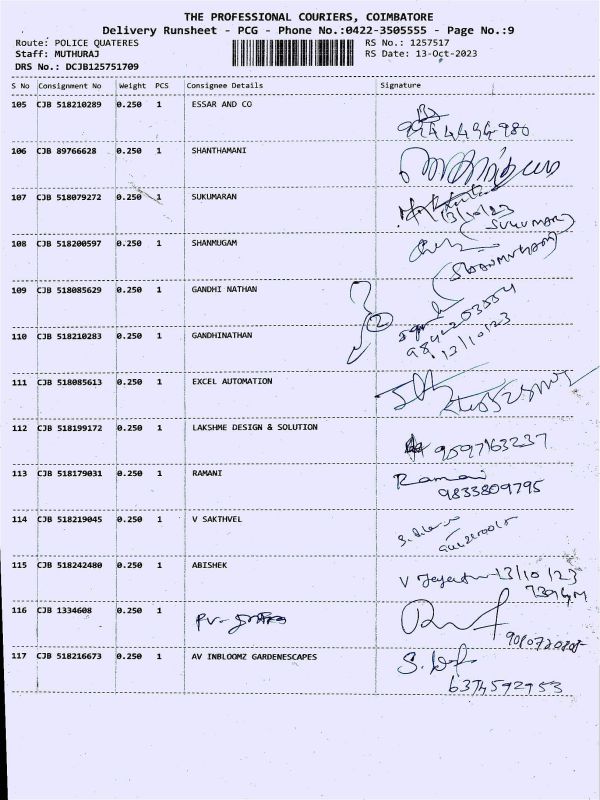 THE PROFESSIONAL COURIERS, COIMBATORE
Delivery Runsheet - PCG - Phone No.:0422-3505555 - Page No.:9
Route: POLICE QUATERES RS No.: 1257517
Staff: MUTHURAJ RS Date: 13-Oct-2023
DRS No.: DCJB125751709
S No Consignment No Weight PCS Consignee Details Signature
105 CJB 518210289 0.250 1 ESSAR AND CO
106 CJB 89766628 0.250 1 SHANTHAMANI
107 CJB 518079272 0.250 1 SUKUMARAN
13/10/23
(SUKUMAR)
108 CJB 518200597 0.250 1 SHANMUGAM
(SHANMUGAM)
109 CJB 518085629 0.250 1 GANDHI NATHAN
2
110 CJB 518210283 0.250 1 GANDHINATHAN
13/10/23
111 CJB 518085613 0.250 1 EXCEL AUTOMATION
112 CJB 518199172 0.250 1 LAKSHME DESIGN & SOLUTION
9597163237
113 CJB 518179031 0.250 1 RAMANI
Ramani
9833809795
114 CJB 518219045 0.250 1 V SAKTHVEL
115 CJB 518242480 0.250 1 ABISHEK
13/10/23
116 CJB 1334608 0.250 1
117 CJB 518216673 0.250 1 AV INBLOOMZ GARDENESCAPES
6374592953